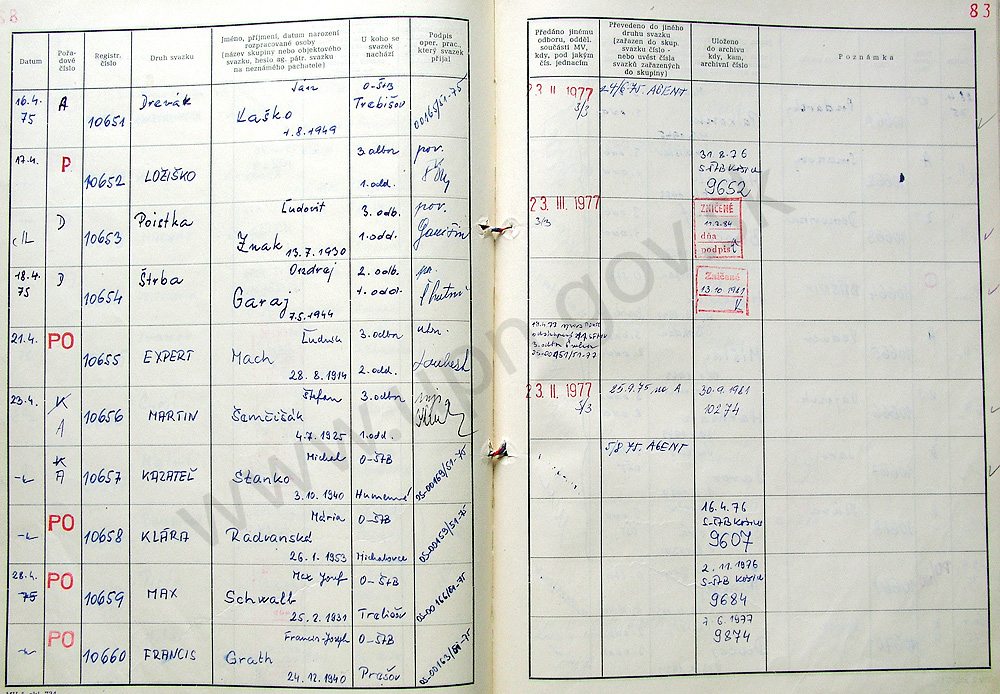 83
Datum
Pořa-
dové
číslo
Registr.
číslo
Druh svazku
Jméno, příjmení, datum narození
rozpracované osoby
(název skupiny nebo objektového
svazku, heslo ag. pátr. svazku
na neznámého pachatele)
U koho se
svazek
nachází
Podpis
oper. prac.,
který svazek
přijal
Předáno jinému
odboru, odděl.
součásti MV,
kdy, pod jakým
čís. jednacím
Převedeno do jiného
druhu svazku
(zařazen do skup.
svazku číslo -
nebo uvést čísla
svazků zařazených
do skupiny)
Uloženo
do archivu
kdy, kam,
archivní číslo
Poznámka
16.4.
75
A
10651
Drevák
Ján
Laško
1.8.1949
O-ŠtB
Trebišov
00165/51-75
23 II 1977
3/3
24/6-75 AGENT
17.4.
P
10652
LOŽIŠKO
3. odbor
1. odd.
pov.
31.8.76
S-ŠtB Košice
9652
D
10653
Poistka
Ľudovít
Znak
13.7.1930
3. odb.
1. odd.
pov.
23. III. 1977
3/3
ZNIČENÉ
dňa
podpis
18.4.
75
D
10654
Štrba
Ondrej
Garaj
7.5.1944
2. odb.
1. odd.
Zničené
13.10.1981
21.4.
PO
10655
EXPERT
Mach
28.8.1914
3. odbor
2. odd.
23.4.
K
A
10656
MARTIN
Štefan
Semčišák
4.7.1925
3. odbor
1. odd.
23. II. 1977
3/3
25.9.75 na A
30.9.1981
10274
K
A
10657
KAZATEĽ
Michal
Stanko
3.10.1940
O-ŠtB
Humenné
05-00169/51-75
5/8 75. AGENT
PO
10658
KLÁRA
Mária
Radvanská
26.1.1953
O-ŠtB
Michalovce
05-00159/51-75
16.4.76
S-ŠtB Košice
9607
28.4.
75
PO
10659
MAX
Max Josef
Schwalb
25.2.1931
O-ŠtB
Trebišov
05-00166/51-75
2.11.1976
S-ŠtB Košice
9684
PO
10660
FRANCIS
Francis-Joseph
Grath
24.12.1940
O-ŠtB
Prešov
05-00163/51-75
7.6.1977
9874
www.upn.gov.sk